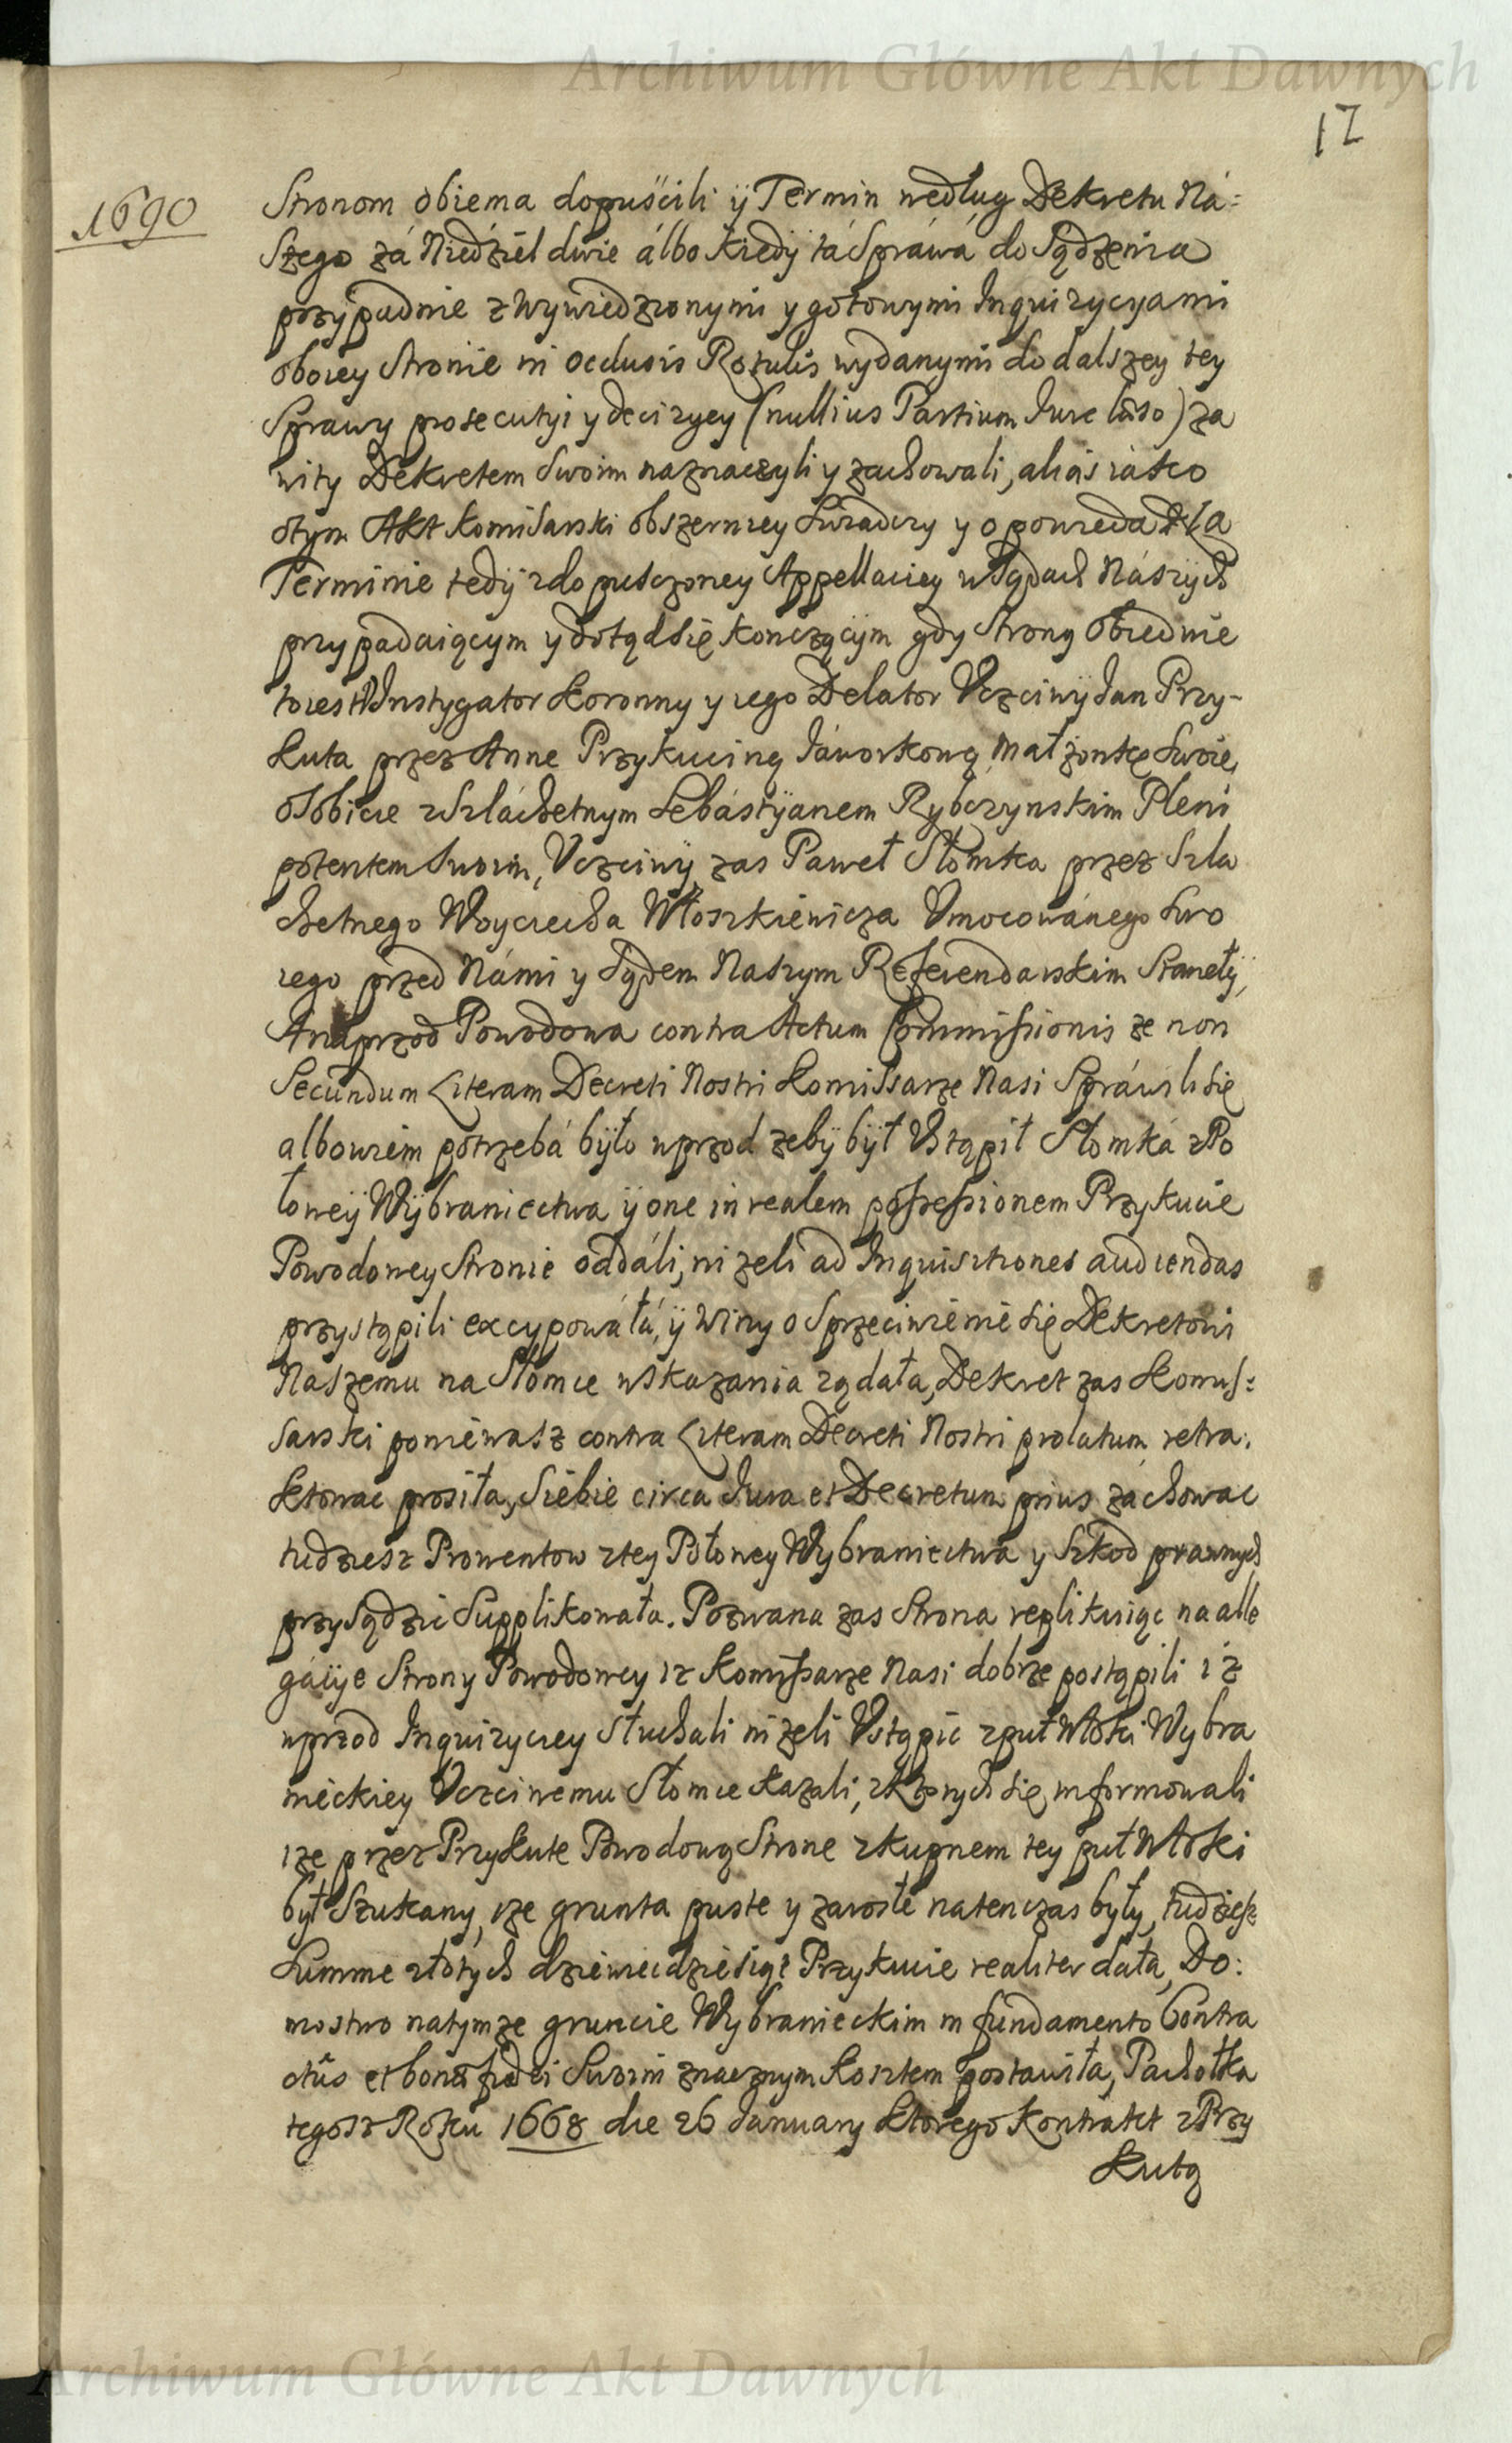 Archiwum Główne Akt Dawnych
17
1690
Stronom obiema dopuścili ÿ Termin według Dekretu Ná=
Szego zá Niedźiel dwie álbo kiedÿ tá Spráwá do Sądzenia
przypadnie z wywiedzionymi y gotowymi Inquizycyami
oboiey Stronie in occlusis Rotulis wydanymi do dalszey tey
Sprawy prosecutyi y decizyey (nullius Partium Iure læso) za
wity Dekretem Swoim naznaczyli y zachowali, aliás iasko
otym Akt komisarski obszerniey Swiadczy y opowieda Za
Terminie tedÿ zdopusczoney Appellaciey w Sądach Nászÿch
przypadaiącym y dotąd Się kończącÿm gdy Strony Obiedwie
toiest Instygator Koronny y iego Delator Uczciwÿ Jan Przy-
kuta przez Anne Przykucinę Jáworkową Małżonkę Swoię,
Osobiscie z Szláchetnym Sebástÿanem Rybczynskim Pleni
potentem Swoim, Uczciwÿ zas Paweł Słomka przez Szla
chetnego Woyciecha Włoszkiewicza Umocowánego Swo
iego przed Námi y Sądem Naszym Referendarskim Stanełÿ,
A naprzod Powodowa contra Actum Commissionis ze non
Secundum Literam Decreti Nostri Komissarze Nasi Spráwili Się
albowiem potrzebá bÿło wprzod zebÿ bÿł Ustąpił Słomká z Po
łoweÿ Wÿbraniectwa ÿ one in realem possessionem Przykucie
Powodowey Stronie oddáli, nizeli ad Inquisitiones audiendas
przystąpili excypowáłá, ÿ winy o Sprzeciwienie Się Dekretowi
Naszemu na Słomce wskazania ządała, Dekret zas Komis=
sarski poniewasz contra Literam Decreti Nostri prolatum retra:
ktowac prosiła, Siebie circa Iura et Decretum prius záchowac
tudziesz Prowentow z tey Połowey Wybraniectwa y Szkod prawnych
przysądzic Supplikowała. Pozwana zas Strona replikuiąc na alle
gáciÿe Strony Powodowey iz Komissarze Nasi dobrze postąpili iz
wprzod Inquizyciey Słuchali nizeli Ustąpic z puł Włoki Wybra
nieckiey Uczciwemu Słomce kazali, z ktorych Się informowali
ize przez Przykute Powodową Strone z kupnem tey puł Włoki
był Szukany, ize grunta puste y zarosłe natenczas były, tudziesz
Summe złotych dziewiecdziesiąt Przykucie realiter dała, Do:
mostwo natymze gruncie Wybranieckim in fundamento Contra
ctûs et bonæ fidei Swoim znacznym kosztem postawiła, Pachołka
tegosz Roku 1668 die 26 January ktorego kontrakt z Przy
kutą
Archiwum Główne Akt Dawnych